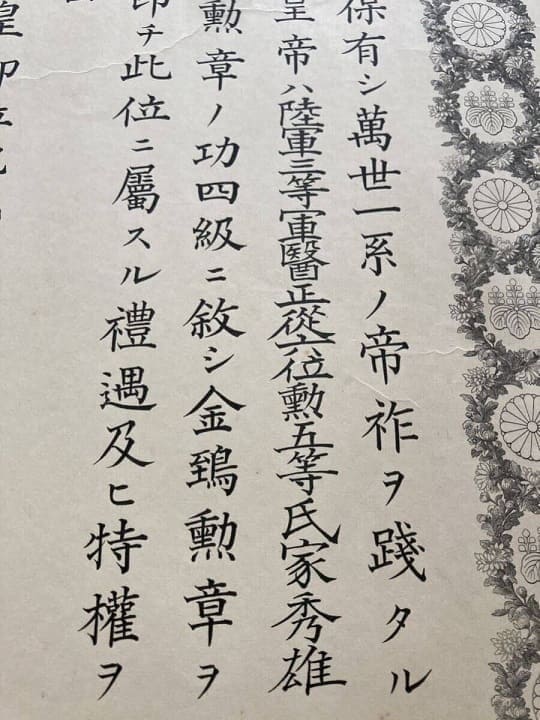 保有シ萬世一系ノ帝祚ヲ踐タル
皇帝ハ陸軍三等軍醫正從六位勲五等氏家秀雄
勲章ノ功四級ニ敘シ金鵄勲章ヲ
即チ此位ニ屬スル禮遇及ヒ特權ヲ
皇即位紀